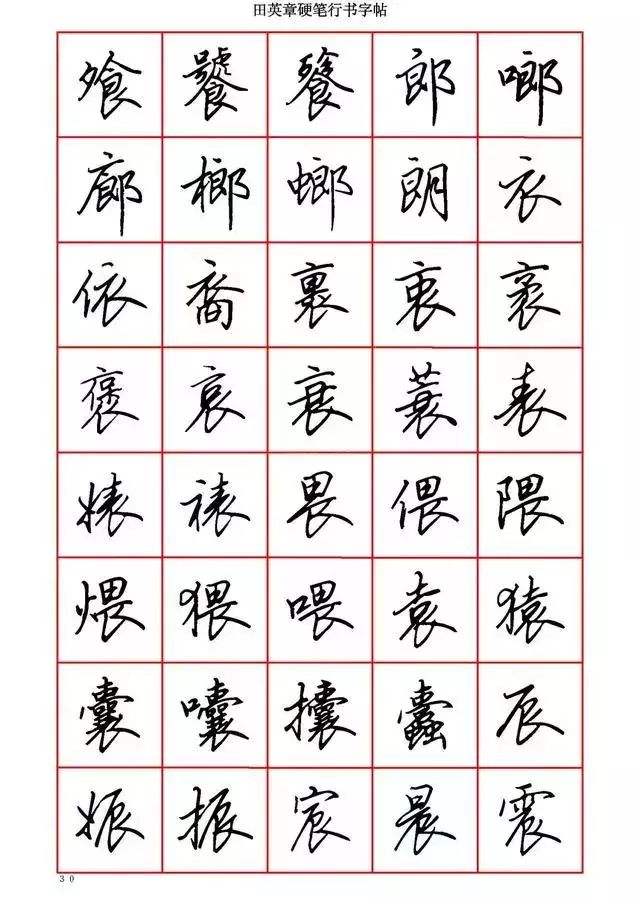 田英章硬笔行书字帖
飧 饕 餮 郎 啷
廊 榔 螂 朗 衣
依 裔 裹 衷
褒 哀 衰 蓑 表
婊 裱 畏 偎 隈
煨 猥 喂 袁 猿
囊 囔 攮 蠹 辰
娠 振 宸 晨 震
30